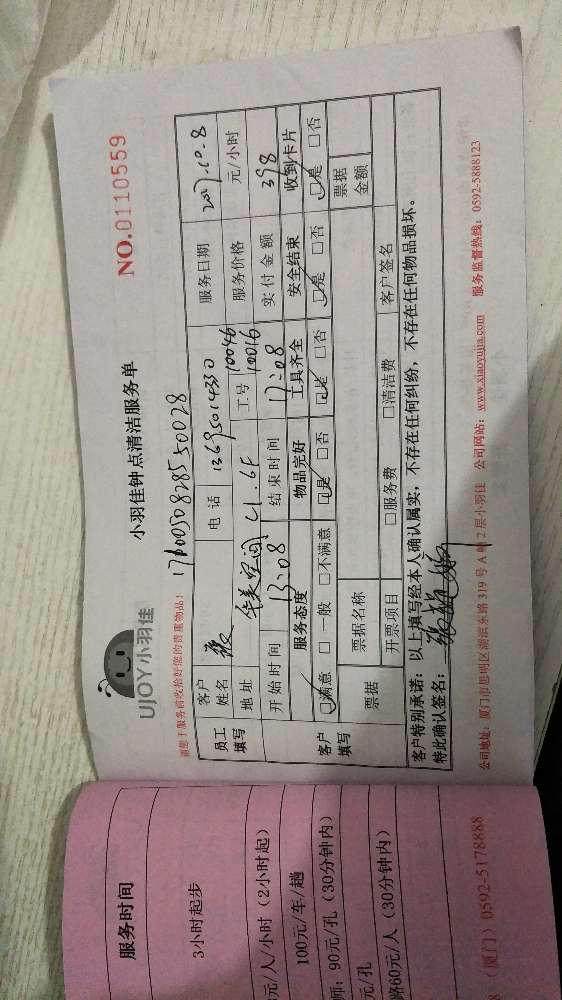 UJOY小羽佳
小羽佳钟点清洁服务单
NO.0110559
请您于服务前收拾好您的贵重物品!
1710050828550028
员工填写
客户姓名
张
电话
13695014330
服务日期
2017.10.8
地址
华美空间 L1.6F
工号
10046
10016
服务价格
元/小时
开始时间
13:08
结束时间
17:08
实付金额
398
客户填写
服务态度 物品完好 工具齐全 安全结束 收到卡片
□满意 □一般 □不满意 □是 □否 □是 □否 □是 □否 □是 □否
票据
票据名称
票据金额
开票项目 □服务费 □清洁费 客户签名
客户特别承诺：以上填写经本人确认属实，不存在任何纠纷，不存在任何物品损坏。
特此确认签名：
公司地址：厦门市思明区湖滨东路 319 号 A 幢 2 层小羽佳 公司网站：www.xiaoyujia.com 服务监督热线：0592-5888123
服务时间
3小时起步
元/人/小时（2小时起）
100元/车/趟
师：90元/孔（30分钟内）
元/孔
60元/人（30分钟内）
（厦门）0592-5178888